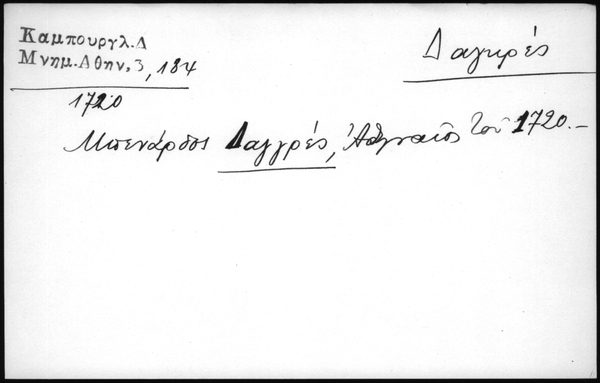 Καμπουργλ.Δ
Μνημ.Αθην,3,184
Δαγκρές
1720
Μπενάρδος Δαγγρές, Ἀθηναῖος τοῦ 1720.-